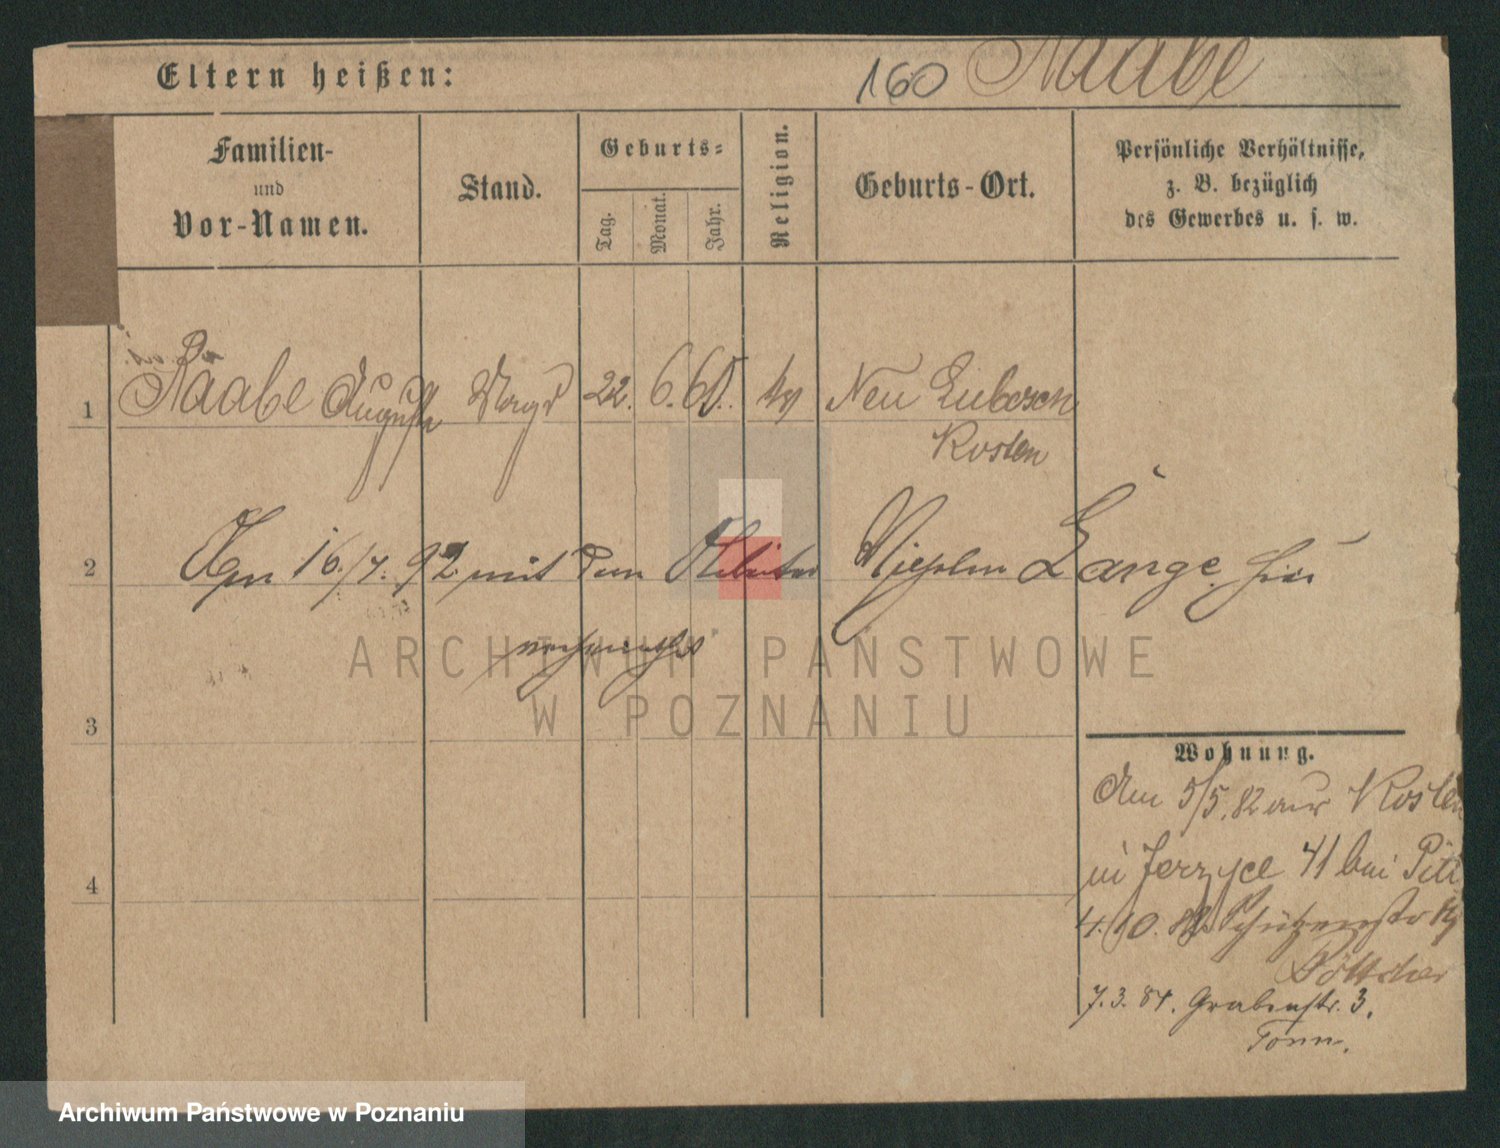 Eltern heißen: 160 Raabe
Familien- und Vor-Namen.
Stand.
Geburts-
Tag.
Monat.
Jahr.
Religion.
Geburts-Ort.
Persönliche Verhältnisse,
z. B. bezüglich
des Gewerbes u. s. w.
1 Raabe Auguste Magd 22. 6. 60. ev Neu
Kosten
2 16./7. 92. mit dem Arbeiter Lange hier
ARCHIWUM PAŃSTWOWE
W POZNANIU
3
Wohnung.
Am 5/5. 82 aus Kosten
in Jerzyce 41 bei
4
4. 10. 82 Schützenstr
Böttcher
7. 3. 84. Grabenstr. 3.
Archiwum Państwowe w Poznaniu